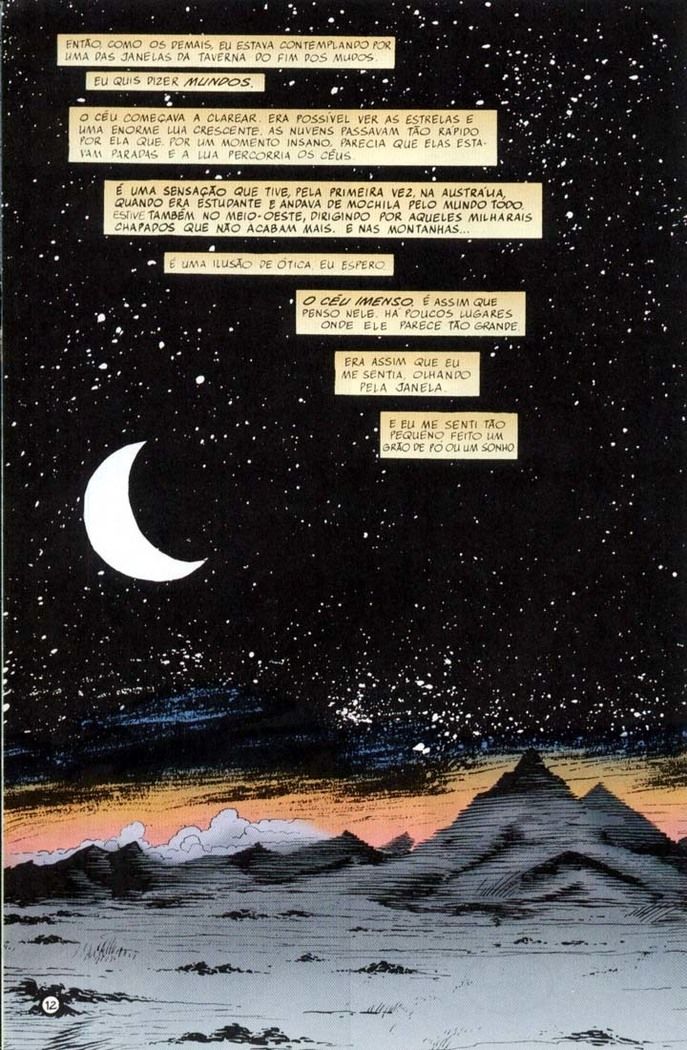 ENTÃO, COMO OS DEMAIS, EU ESTAVA CONTEMPLANDO POR
UMA DAS JANELAS DA TAVERNA DO FIM DOS MUDOS.
EU QUIS DIZER MUNDOS.
O CÉU COMEÇAVA A CLAREAR. ERA POSSÍVEL VER AS ESTRELAS E
UMA ENORME LUA CRESCENTE. AS NUVENS PASSAVAM TÃO RÁPIDO
POR ELA QUE, POR UM MOMENTO INSANO, PARECIA QUE ELAS ESTA-
VAM PARADAS E A LUA PERCORRIA OS CÉUS.
É UMA SENSAÇÃO QUE TIVE, PELA PRIMEIRA VEZ, NA AUSTRÁLIA,
QUANDO ERA ESTUDANTE E ANDAVA DE MOCHILA PELO MUNDO TODO.
ESTIVE TAMBÉM NO MEIO-OESTE, DIRIGINDO POR AQUELES MILHARAIS
CHAPADOS QUE NÃO ACABAM MAIS. E NAS MONTANHAS...
É UMA ILUSÃO DE ÓTICA, EU ESPERO.
O CÉU IMENSO. É ASSIM QUE
PENSO NELE. HÁ POUCOS LUGARES
ONDE ELE PARECE TÃO GRANDE.
ERA ASSIM QUE EU
ME SENTIA, OLHANDO
PELA JANELA.
E EU ME SENTI TÃO
PEQUENO FEITO UM
GRÃO DE PÓ OU UM SONHO.
12